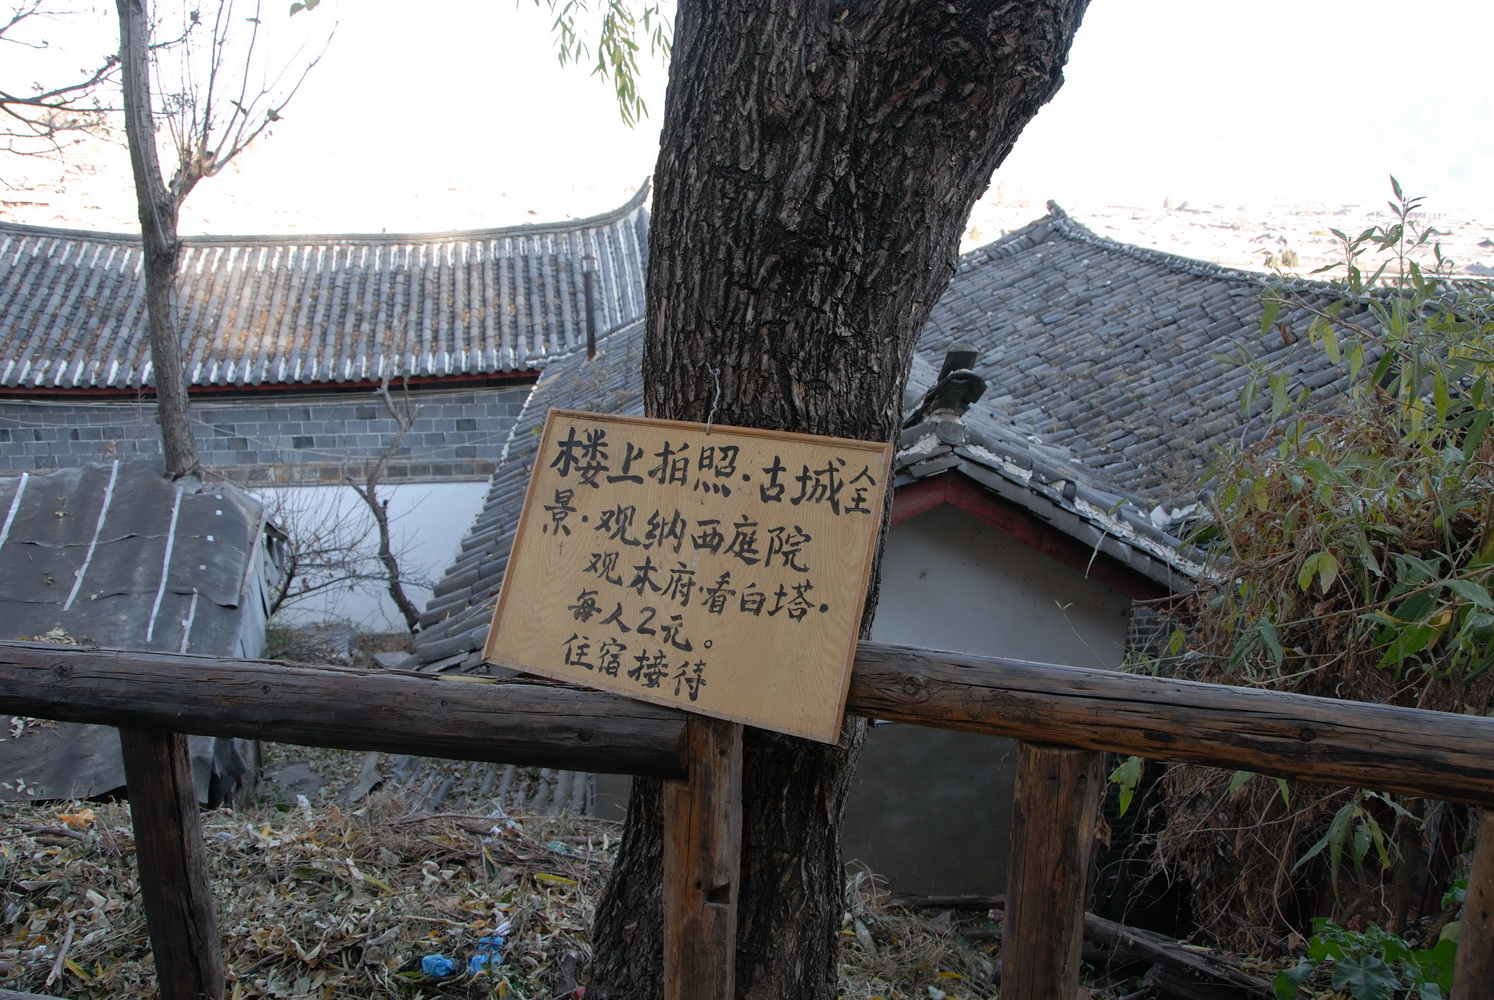 楼上拍照·古城全
景·观纳西庭院
观木府·看白塔·
每人2元。
住宿接待